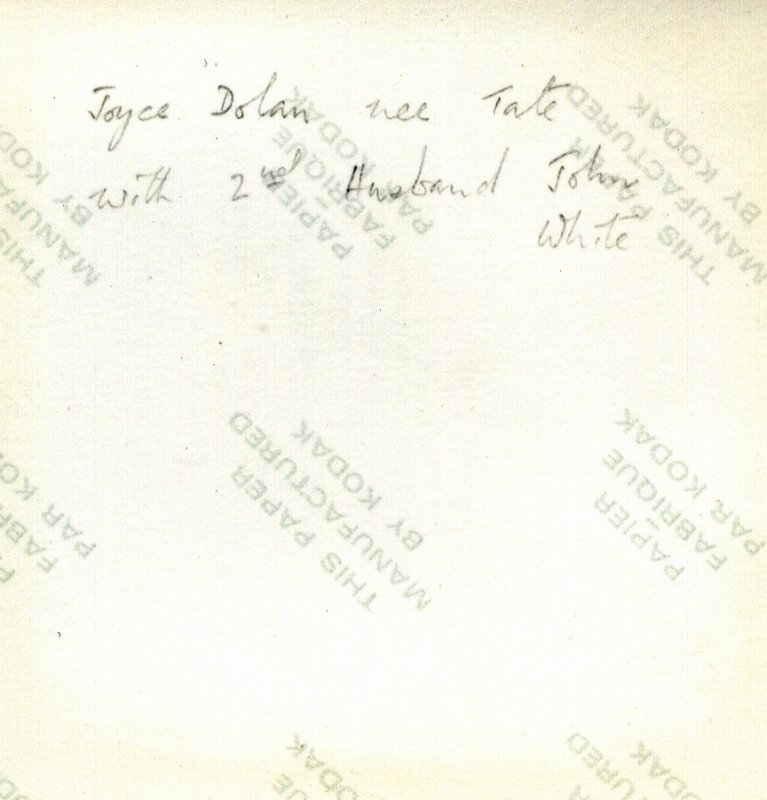 Joyce Dolan nee Tate
with 2nd Husband John
White
THIS PAPER
MANUFACTURED
BY KODAK
PAPIER
FABRIQUE
PAR KODAK
THIS PAPER
MANUFACTURED
BY KODAK
THIS PAPER
MANUFACTURED
BY KODAK
PAPIER
FABRIQUE
PAR KODAK